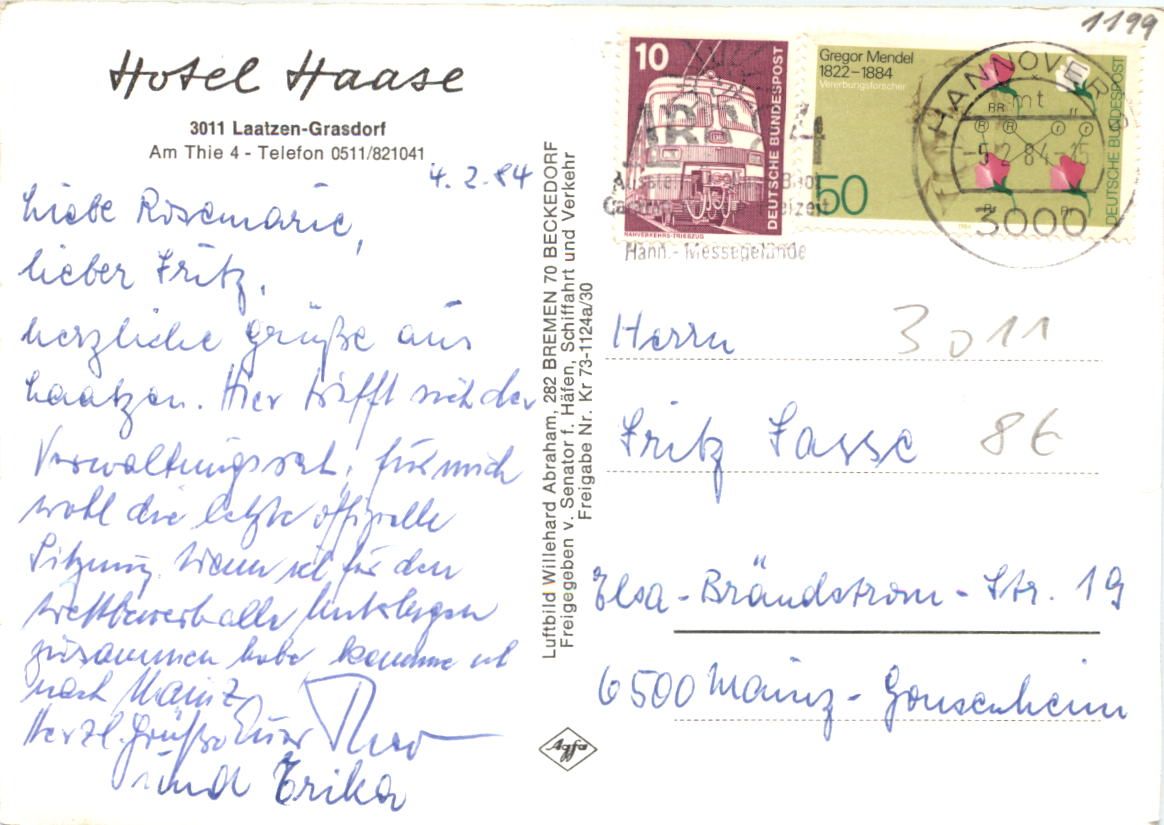 1199
Hotel Haase
3011 Laatzen-Grasdorf
Am Thie 4 - Telefon 0511/821041
4. 2. 84
Liebe Rosemarie,
lieber Fritz,
herzliche Grüße aus
Laatzen. Hier trifft sich der
Verwaltungsrat, für mich
wohl die letzte offizielle
Sitzung. Wenn ich für den
Wettbewerb alle Unterlagen
zusammen habe komme ich
nach Mainz
Herzl. Grüße Euer Theo
und Erika
Luftbild Willehard Abraham, 282 BREMEN 70 BECKEDORF
Freigegeben v. Senator f. Häfen, Schiffahrt und Verkehr
Freigabe Nr. Kr 73-1124a/30
Agfa
10
DEUTSCHE BUNDESPOST
NAHVERKEHRS-TRIEBZUG
Gregor Mendel
1822-1884
Vererbungsforscher
50
DEUTSCHE BUNDESPOST
RR
rr
R R r r
Rr Rr
HANNOVER
mt
-5.2.84-15
3000
Hann.- Messegelände
Herrn
3011
Fritz Fasse
8€
Elsa-Brändstrom-Str. 19
6500 Mainz-Gonsenheim